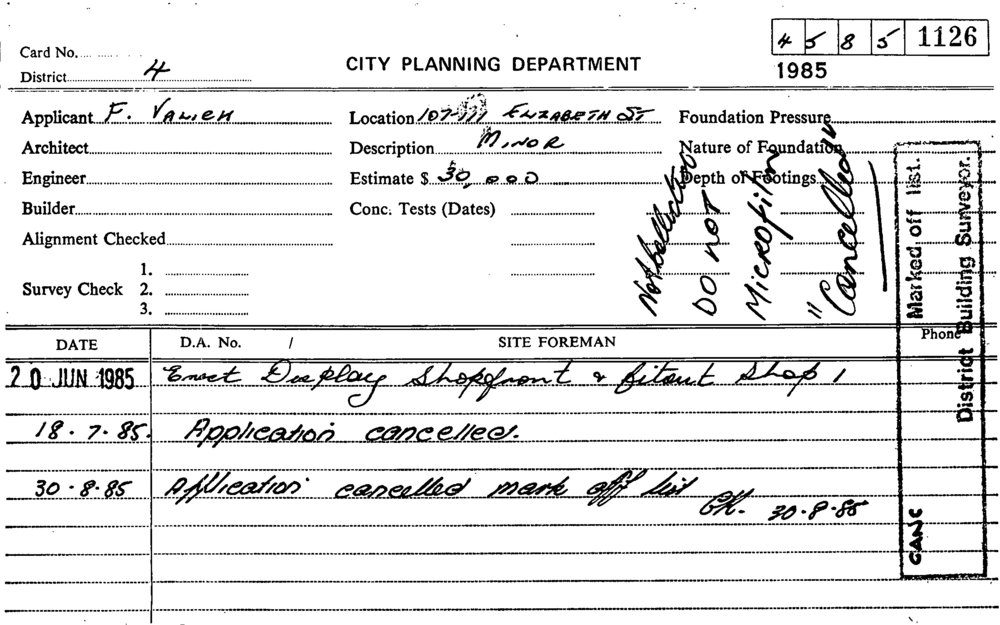 4 5 8 5 1126
Card No.
CITY PLANNING DEPARTMENT
1985
District 4
Applicant F.
Location 107-111 ELIZABETH ST
Foundation Pressure
Architect
Description MINOR
Nature of Foundation
Engineer
Estimate $ 30,000
Depth of Footings
Builder
Conc. Tests (Dates)
Alignment Checked
1.
Survey Check 2.
3.
DO NOT
Microfilm
"Cancelled"
Marked off list.
District Building Surveyor.
CANC
DATE D.A. No. / SITE FOREMAN Phone
20 JUN 1985 Erect Display Shopfront & fitout Shop 1
18.7.85. Application cancelled.
30.8.85 Application cancelled mark off list
30.8.85